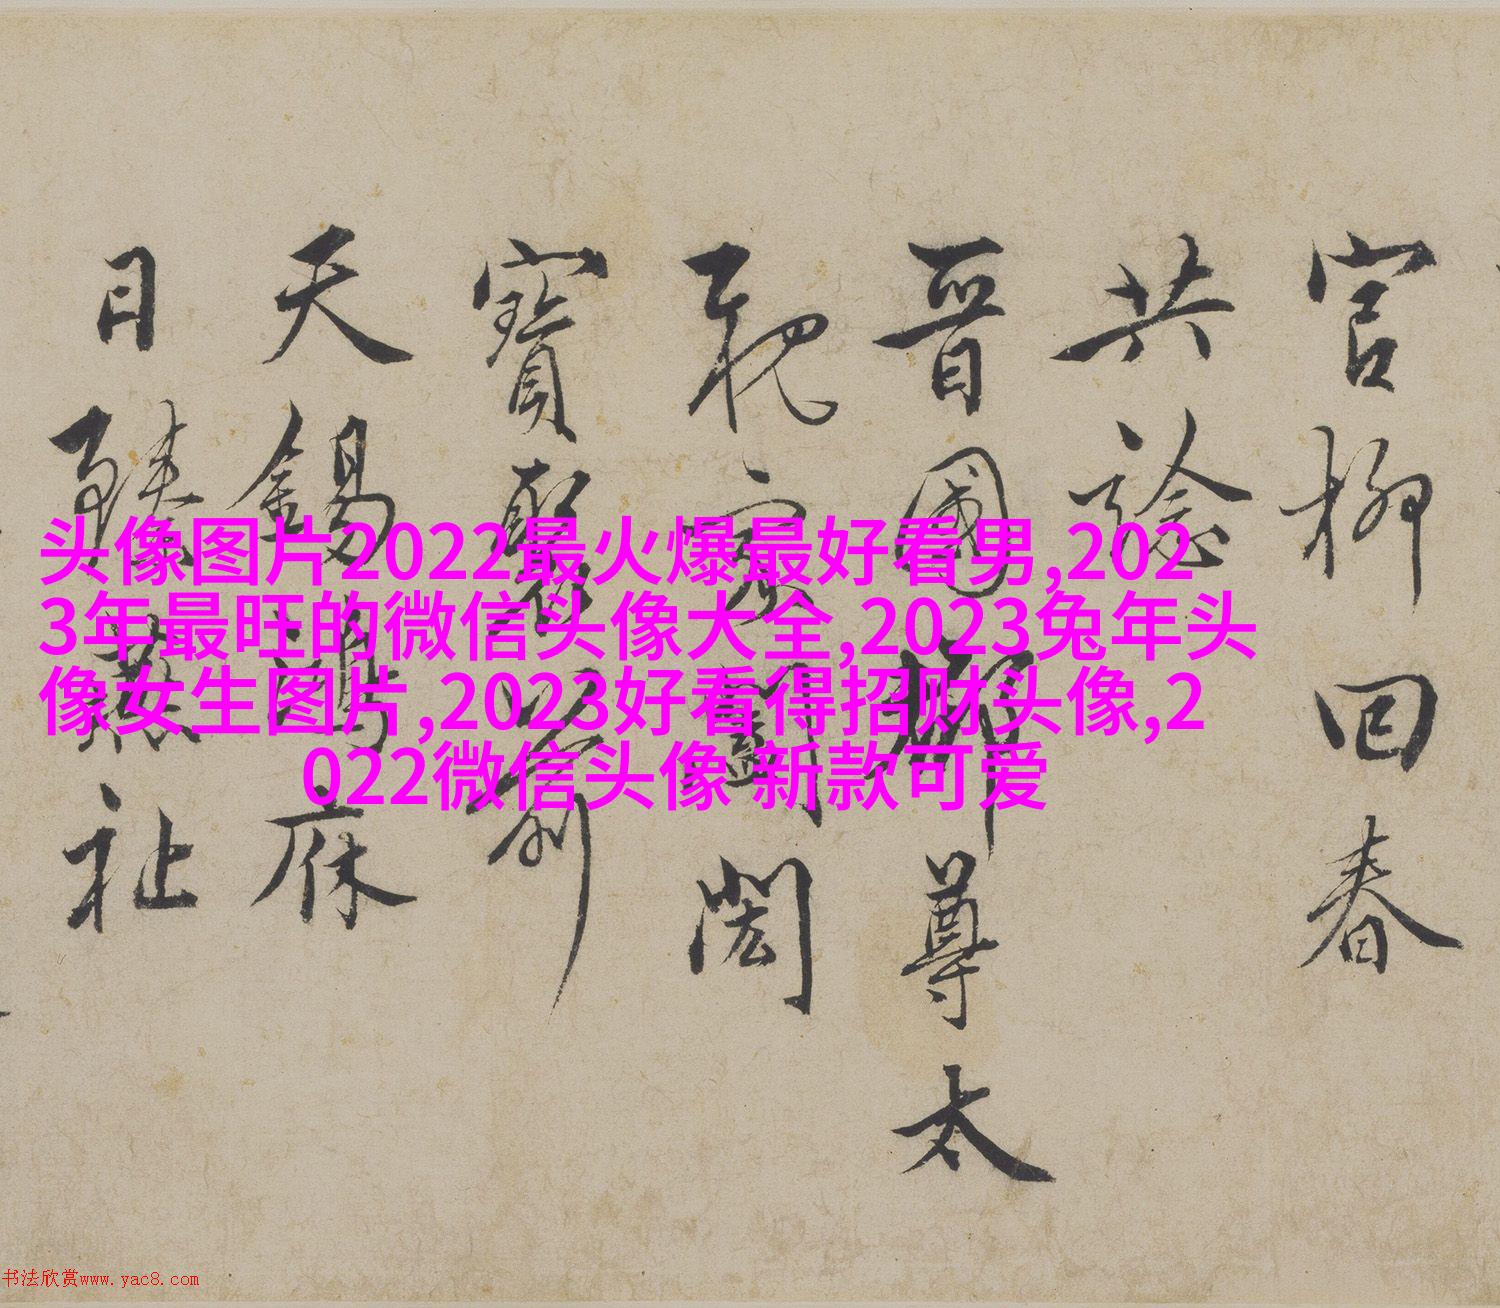 官柳回春
共諗
晋國尊太
家閎
寶前
天錫鴻庥
日臻祉
头像图片2022最火爆最好看男,202
3年最旺的微信头像大全,2023兔年头
像女生图片,2023好看得招财头像,2
022微信头像 新款可爱
书法欣赏www.yac8.com